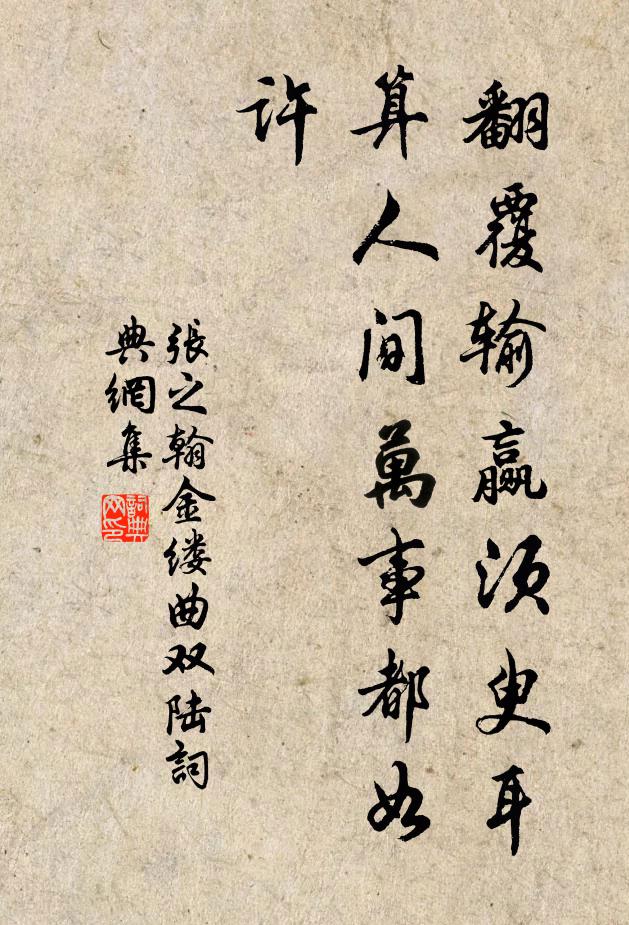 翻覆输赢须臾耳
算人间萬事都如
许
張之翰金缕曲双陆詞
典網集
詞典网印